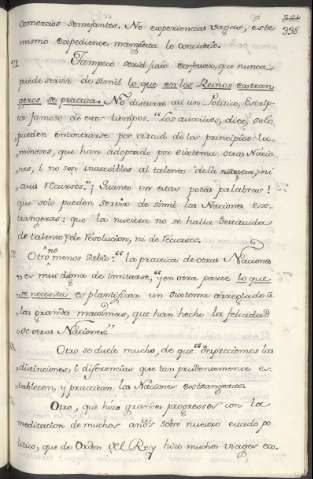 338
335
comercios semejantes. No experiencias vagas, este
mismo expediente manifiesta lo concluie.
Tampoco será fuera de que nunca
puede servir de simil lo que en los Reinos extran-
geros se practica. No discurre asi un Politico, Escrip-
tor famoso de otro tiempo. "Los auxilios, dice, solo
pueden encontrarse por virtud de los principios lu-
minosos, que han adoptado por sistema otras Nacio-
nes, i no son inaccesibles al talento de la nuestra, ni
a sus recursos." ¡Quanto en estas pocas palabras!
que solo pueden servir de simil las Naciones ex-
trangeras: que la nuestra no se halla destituida
de talento, de resolucion, ni de recursos.
Otro no menos sabio: "la practica de otras Naciones
es mui digna de imitarse, "y en otra parte lo que
se necesita es plantificar un sistema arreglado à
las grandes maximas, que han hecho la felicidad
de otras Naciones."
Otro se duele mucho, de que "despreciemos las
distinciones, i diferencias que tan prudentemente es-
tablecen, y practican las Naciones extrangeras.
Otro, que hizo grandes progresos con la
meditacion de muchos años sobre nuestro estado po-
litico, que de Orden del Rey hizo muchos viages ex-